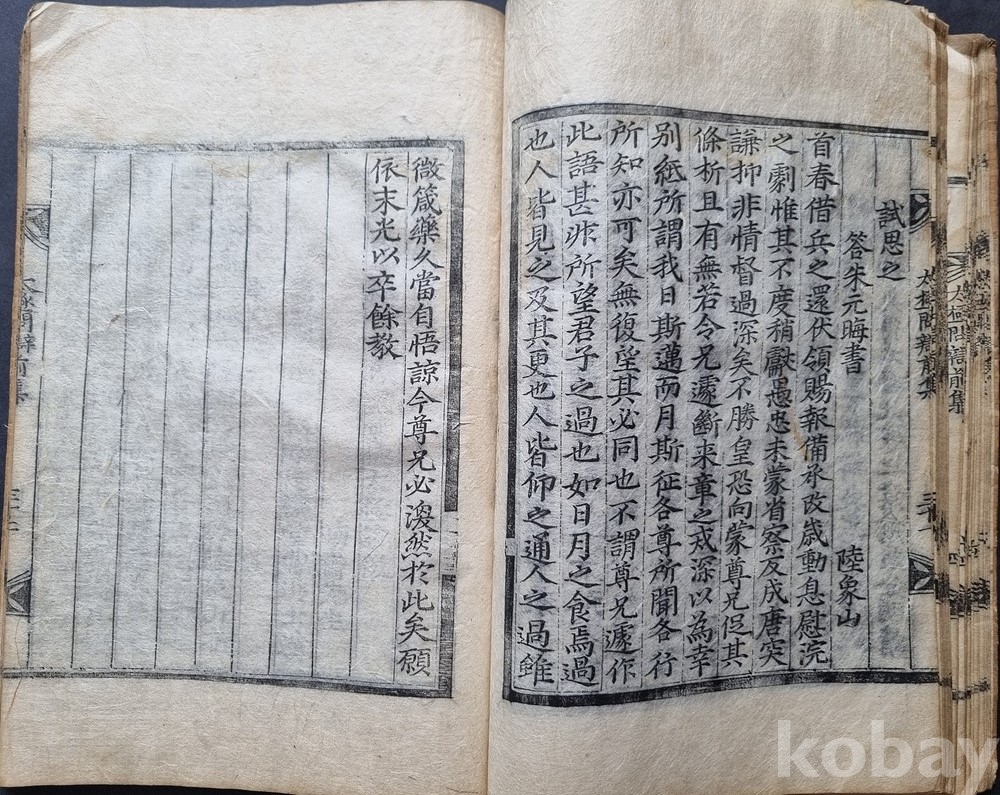 試思之
答朱元晦書 陸象山
首春借兵之還伏領賜報備承改歲動息慰浣
之劇惟其不度稍獻愚忠未蒙省察反成唐突
謙抑非情督過深矣不勝皇恐向蒙尊兄促其
條析且有無若令兄遽斷来章之戒深以為幸
別紙所謂我日斯邁而月斯征各尊所聞各行
所知亦可矣無復望其必同也不謂尊兄遽作
此語甚非所望君子之過也如日月之食焉過
也人皆見之及其更也人皆仰之通人之過雖
微箴藥久當自悟諒今尊兄必渙然於此矣願
依末光以卒餘教
太極問辯前集
kobay